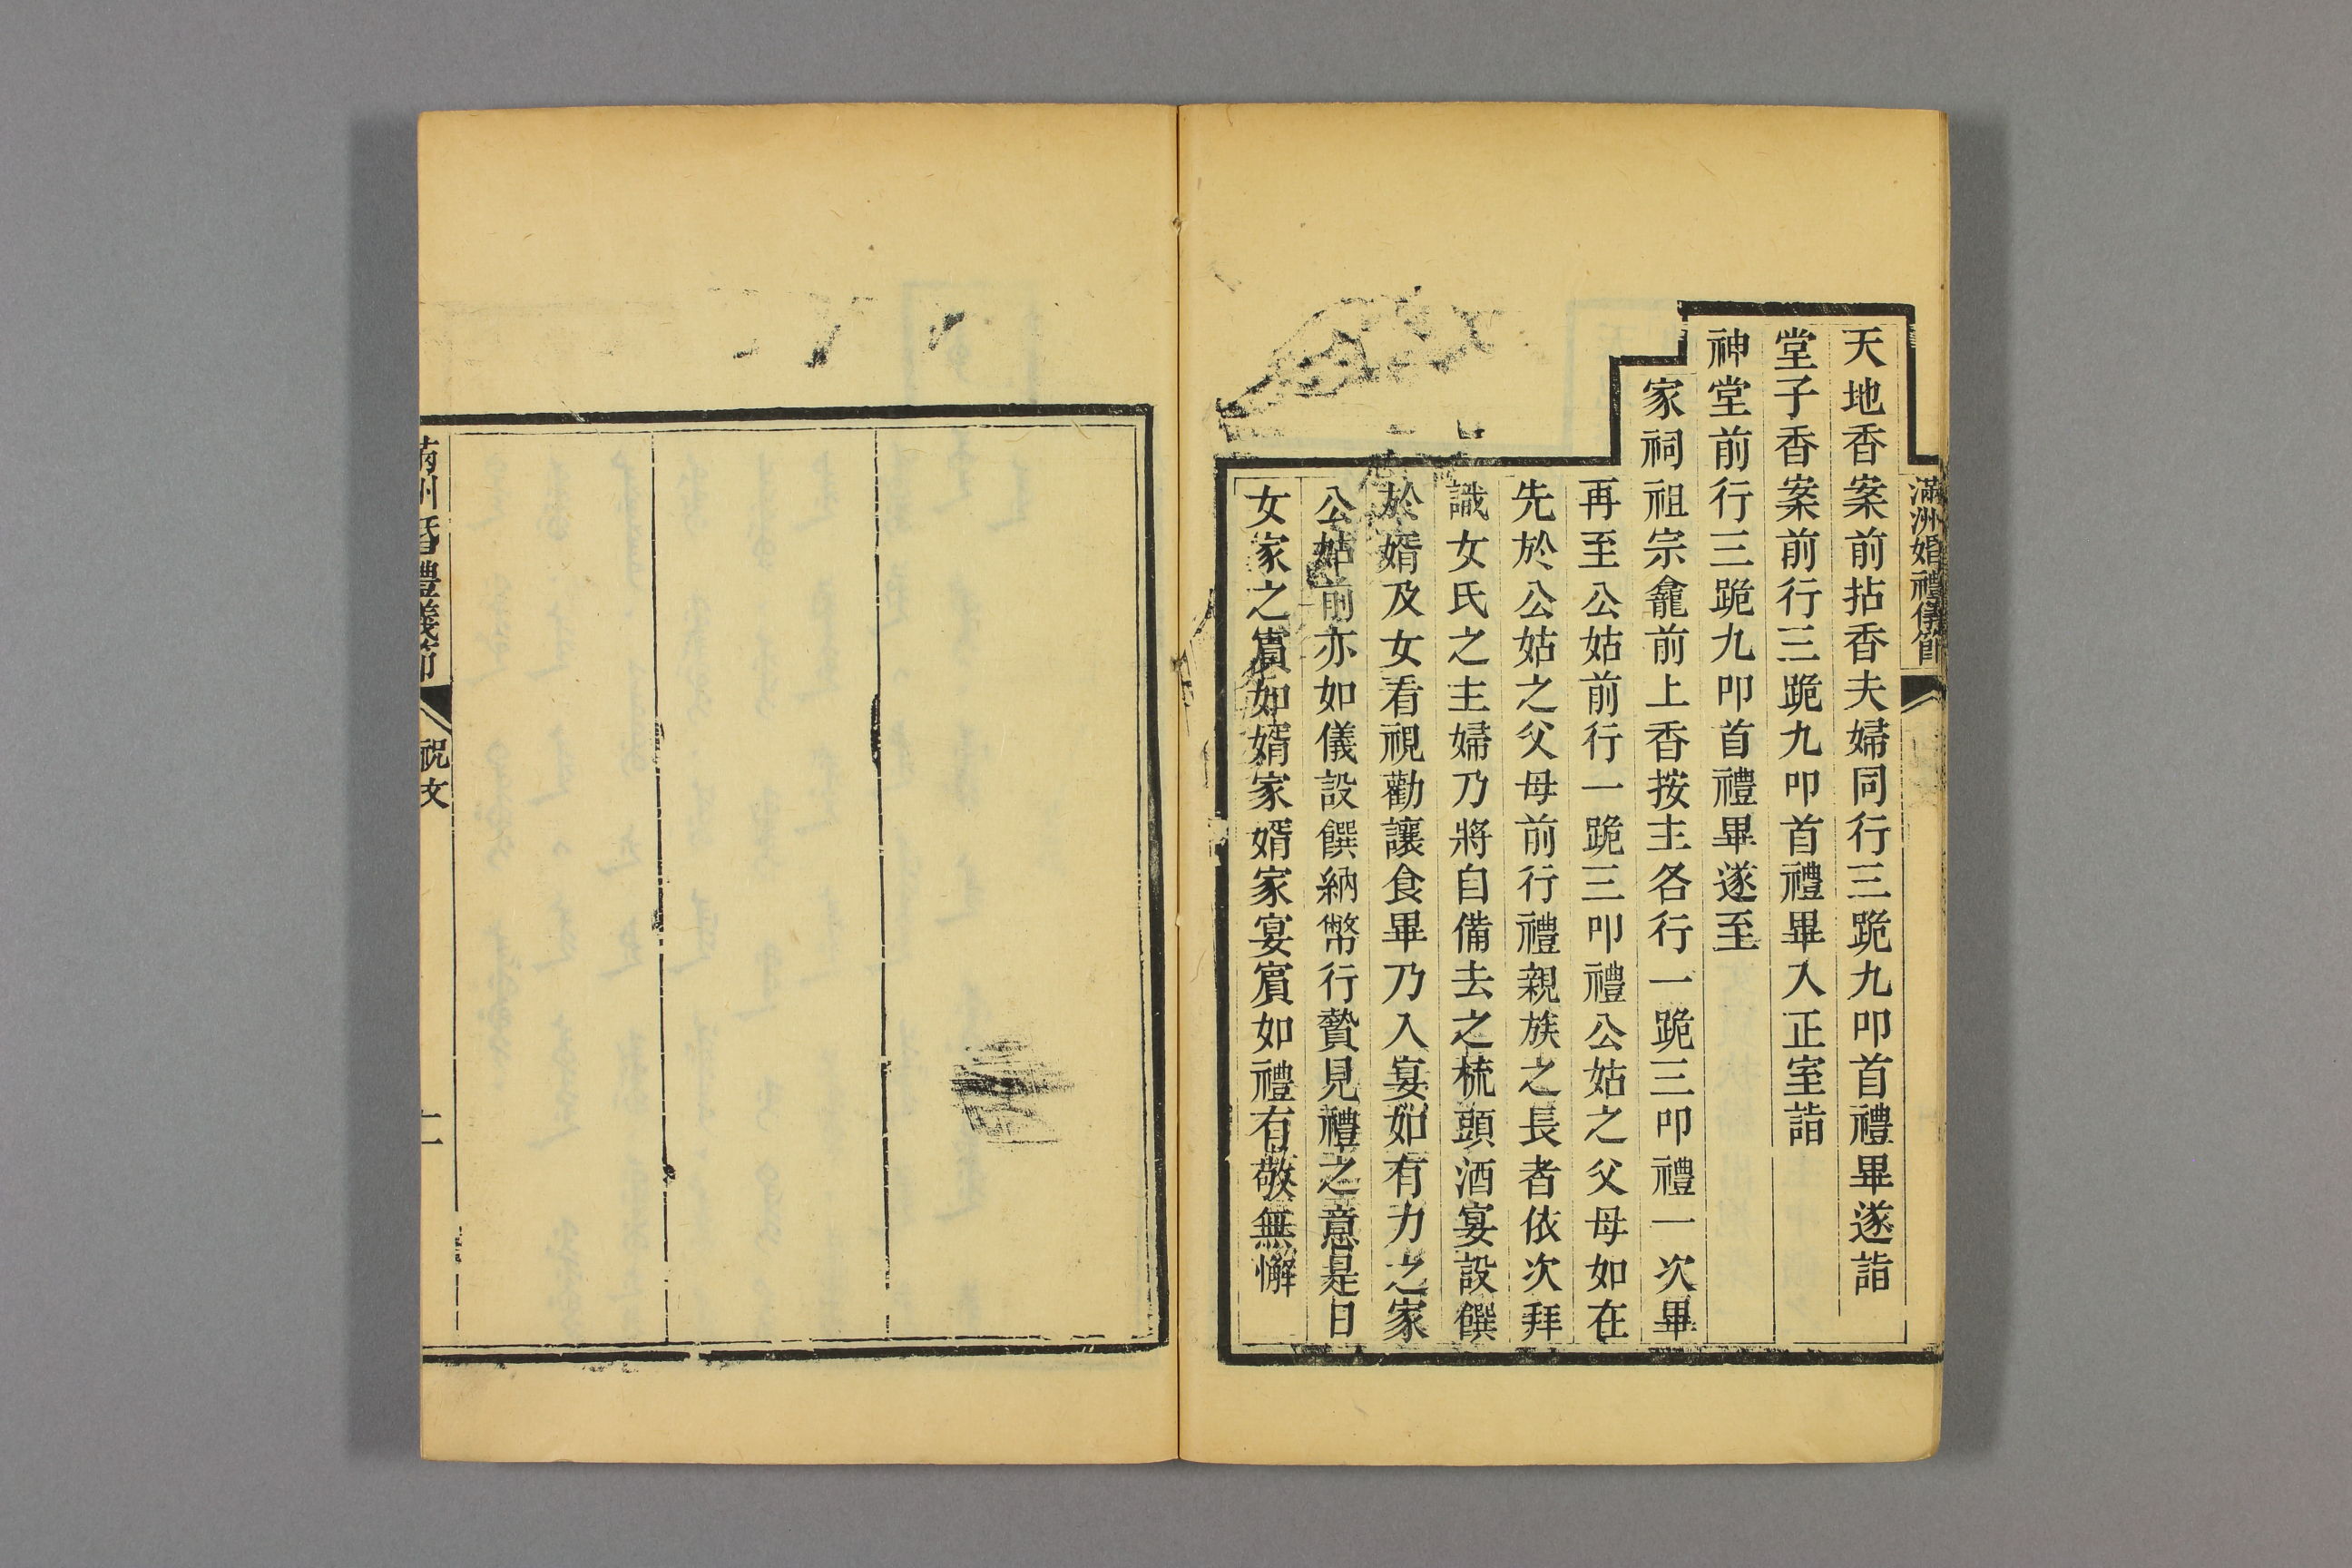 滿洲婚禮儀節
天地香案前拈香夫婦同行三跪九叩首禮畢遂詣
堂子香案前行三跪九叩首禮畢入正室詣
神堂前行三跪九叩首禮畢遂至
家祠祖宗龕前上香按主各行一跪三叩禮一次畢
再至公姑前行一跪三叩禮公姑之父母如在
先於公姑之父母前行禮親族之長者依次拜
識女氏之主婦乃將自備去之梳頭酒宴設饌
於婿及女看視勸讓食畢乃入宴如有力之家
公姑前亦如儀設饌納幣行贄見禮之意是日
女家之賓如婿家婿家宴賓如禮有敬無懈
滿洲婚禮儀節
祝文
二